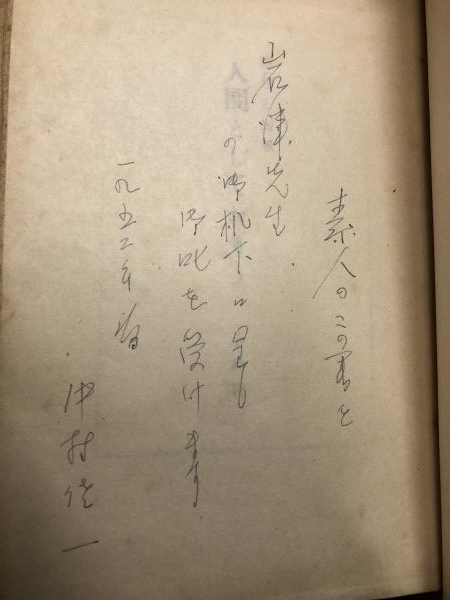 素人のこの書を
岩津先生
の御机下に呈し
御叱を受けます
一九五二年春
中村 一